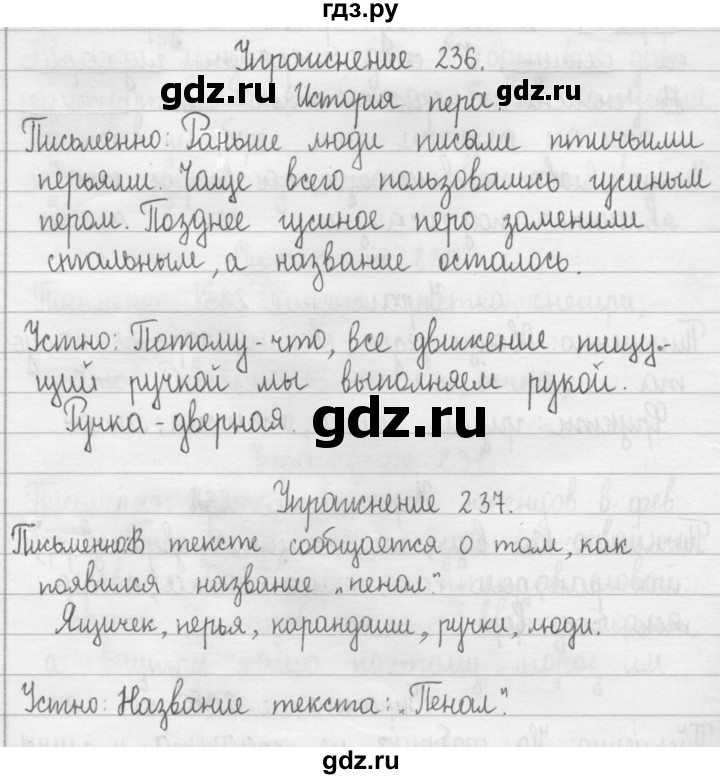 гдз.ру
Упражнение 236.
gdz.ru
gdz.ru
История пера.
Письменно: Раньше люди писали птичьими
перьями. Чаще всего пользовались гусиным
пером. Позднее гусиное перо заменили
стальным, а название осталось.
Устно: Потому-что, все движение пишу-
щий ручкой мы выполняем рукой.
Ручка - дверная.
gdz.ru
Упражнение 237.
Письменно: В тексте сообщается о том, как
появился название „пенал".
Ящичек, перья, карандаши, ручки, люди.
Устно: Название текста: „Пенал".
gdz.ru
gdz.ru